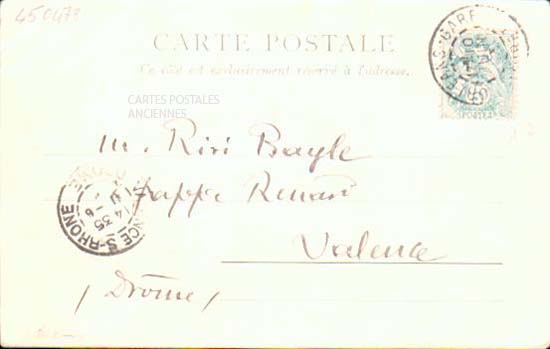 450473
CARTE POSTALE
Ce côté est exclusivement réservé à l'adresse.
CARTES POSTALES
ANCIENNES
ORLEANS-GARE
POSTES
M. Riri Bayle
Frappe Renard
Valence
(Drôme)
VALENCE S-RHONE
14 35